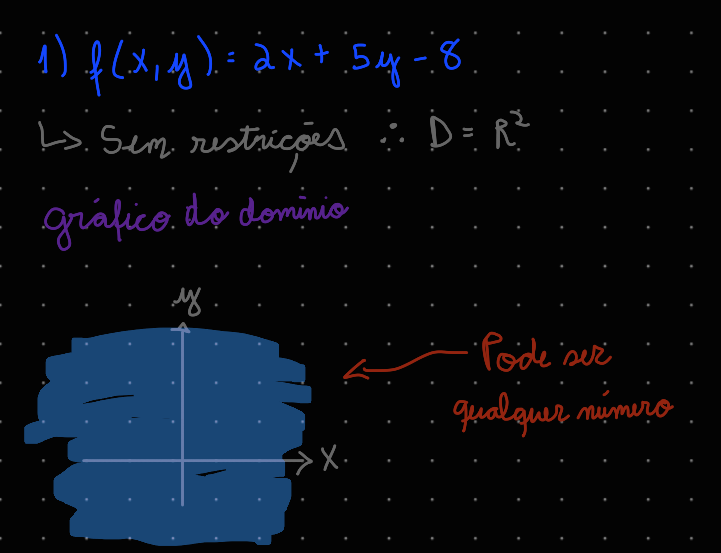 1) f(x,y) = 2x + 5y - 8
↳ Sem restrições ∴ D = R²
gráfico do dominio
y
Pode ser
qualquer número
x